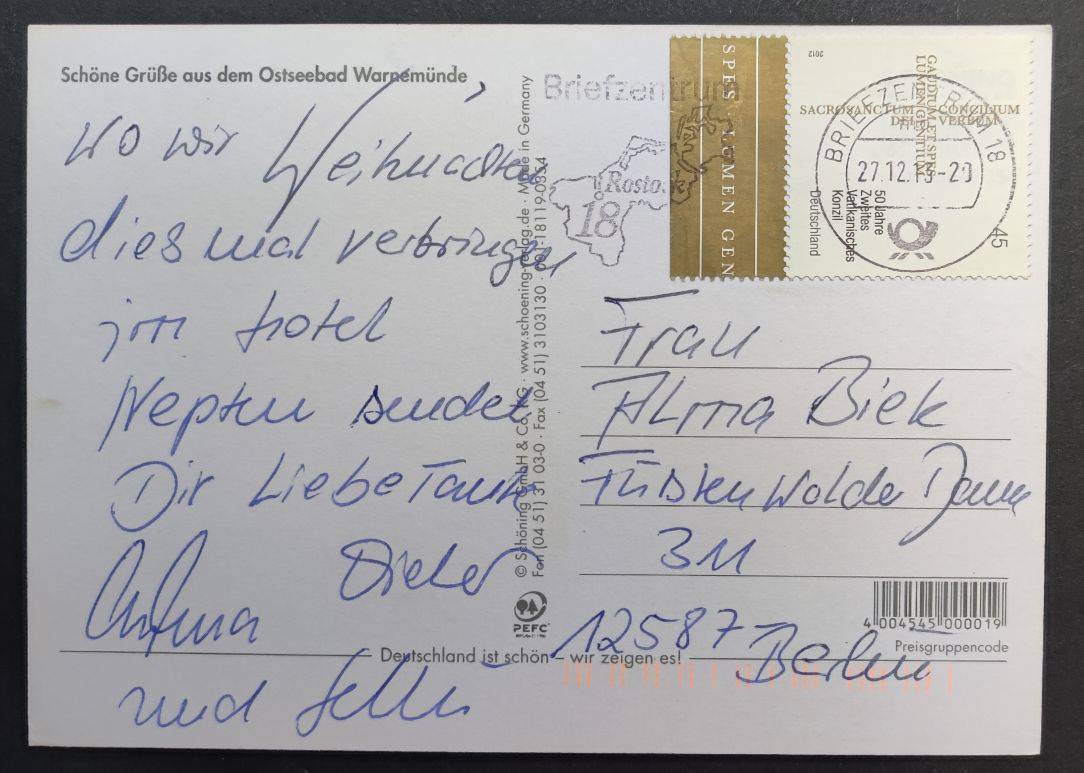 Schöne Grüße aus dem Ostseebad Warnemünde,
wo wir Weihnachten
diesmal verbringen
im Hotel
Neptun sendet
Dir Liebe Tante
Dieter
und
© Schöning GmbH & Co. KG · www.schoening-verlag.de · Made in Germany
Fon (04 51) 31 03-0 · Fax (04 51) 3103130 · 001-18119-0354
PEFC
Deutschland ist schön – wir zeigen es!
Briefzentrum
Rostock
18
SPES · LUMEN GEN
2012
SACROSANCTUM CONCILIUM
DEI VERBUM
GAUDIUM ET SPES
LUMEN GENTIUM
50 Jahre
Zweites
Vatikanisches
Konzil
Deutschland
45
BRIEFZENTRUM 18
Frau
Alma Biek
Fürstenwalder Damm
311
12587 Berlin
4 004545 000019
Preisgruppencode